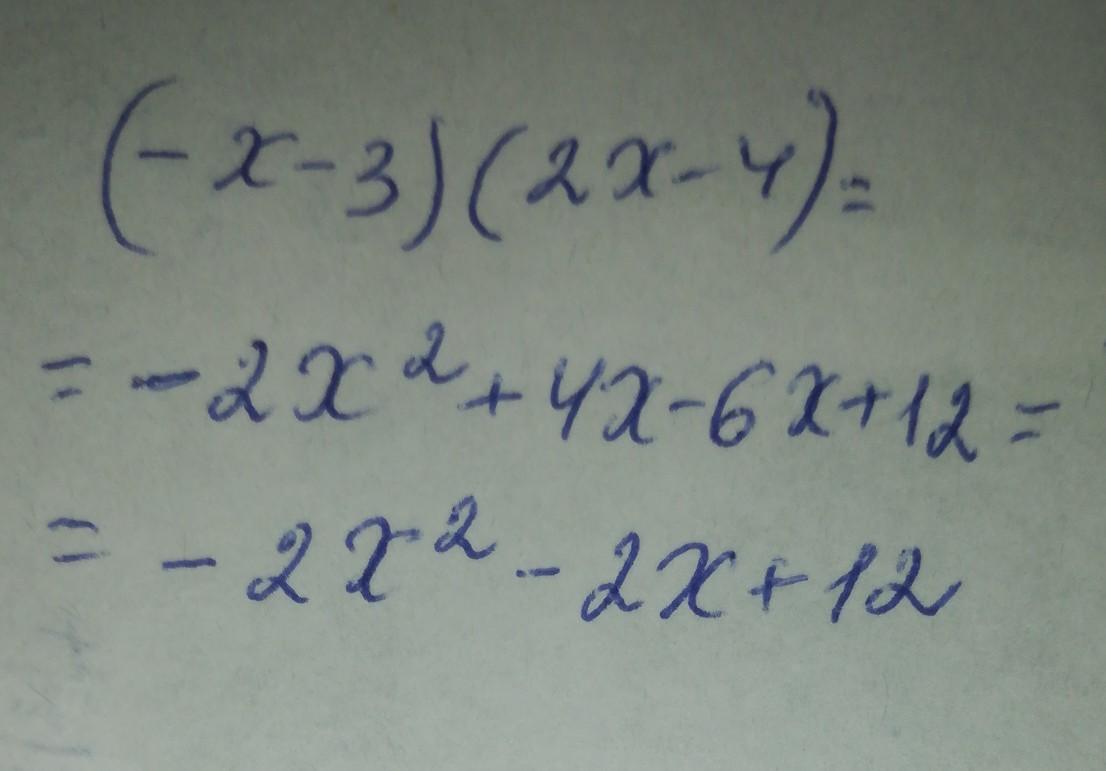 (-x-3)(2x-4)=
=-2x²+4x-6x+12=
=-2x²-2x+12